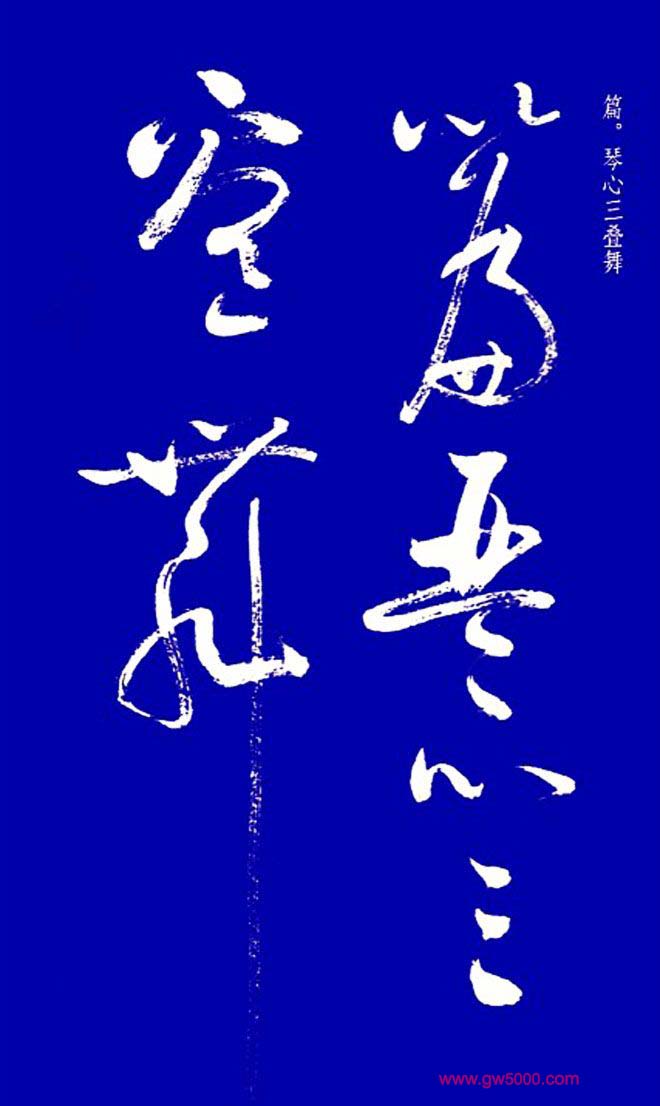 篇。琴心三叠舞
篇琴心三
叠舞
www.gw5000.com